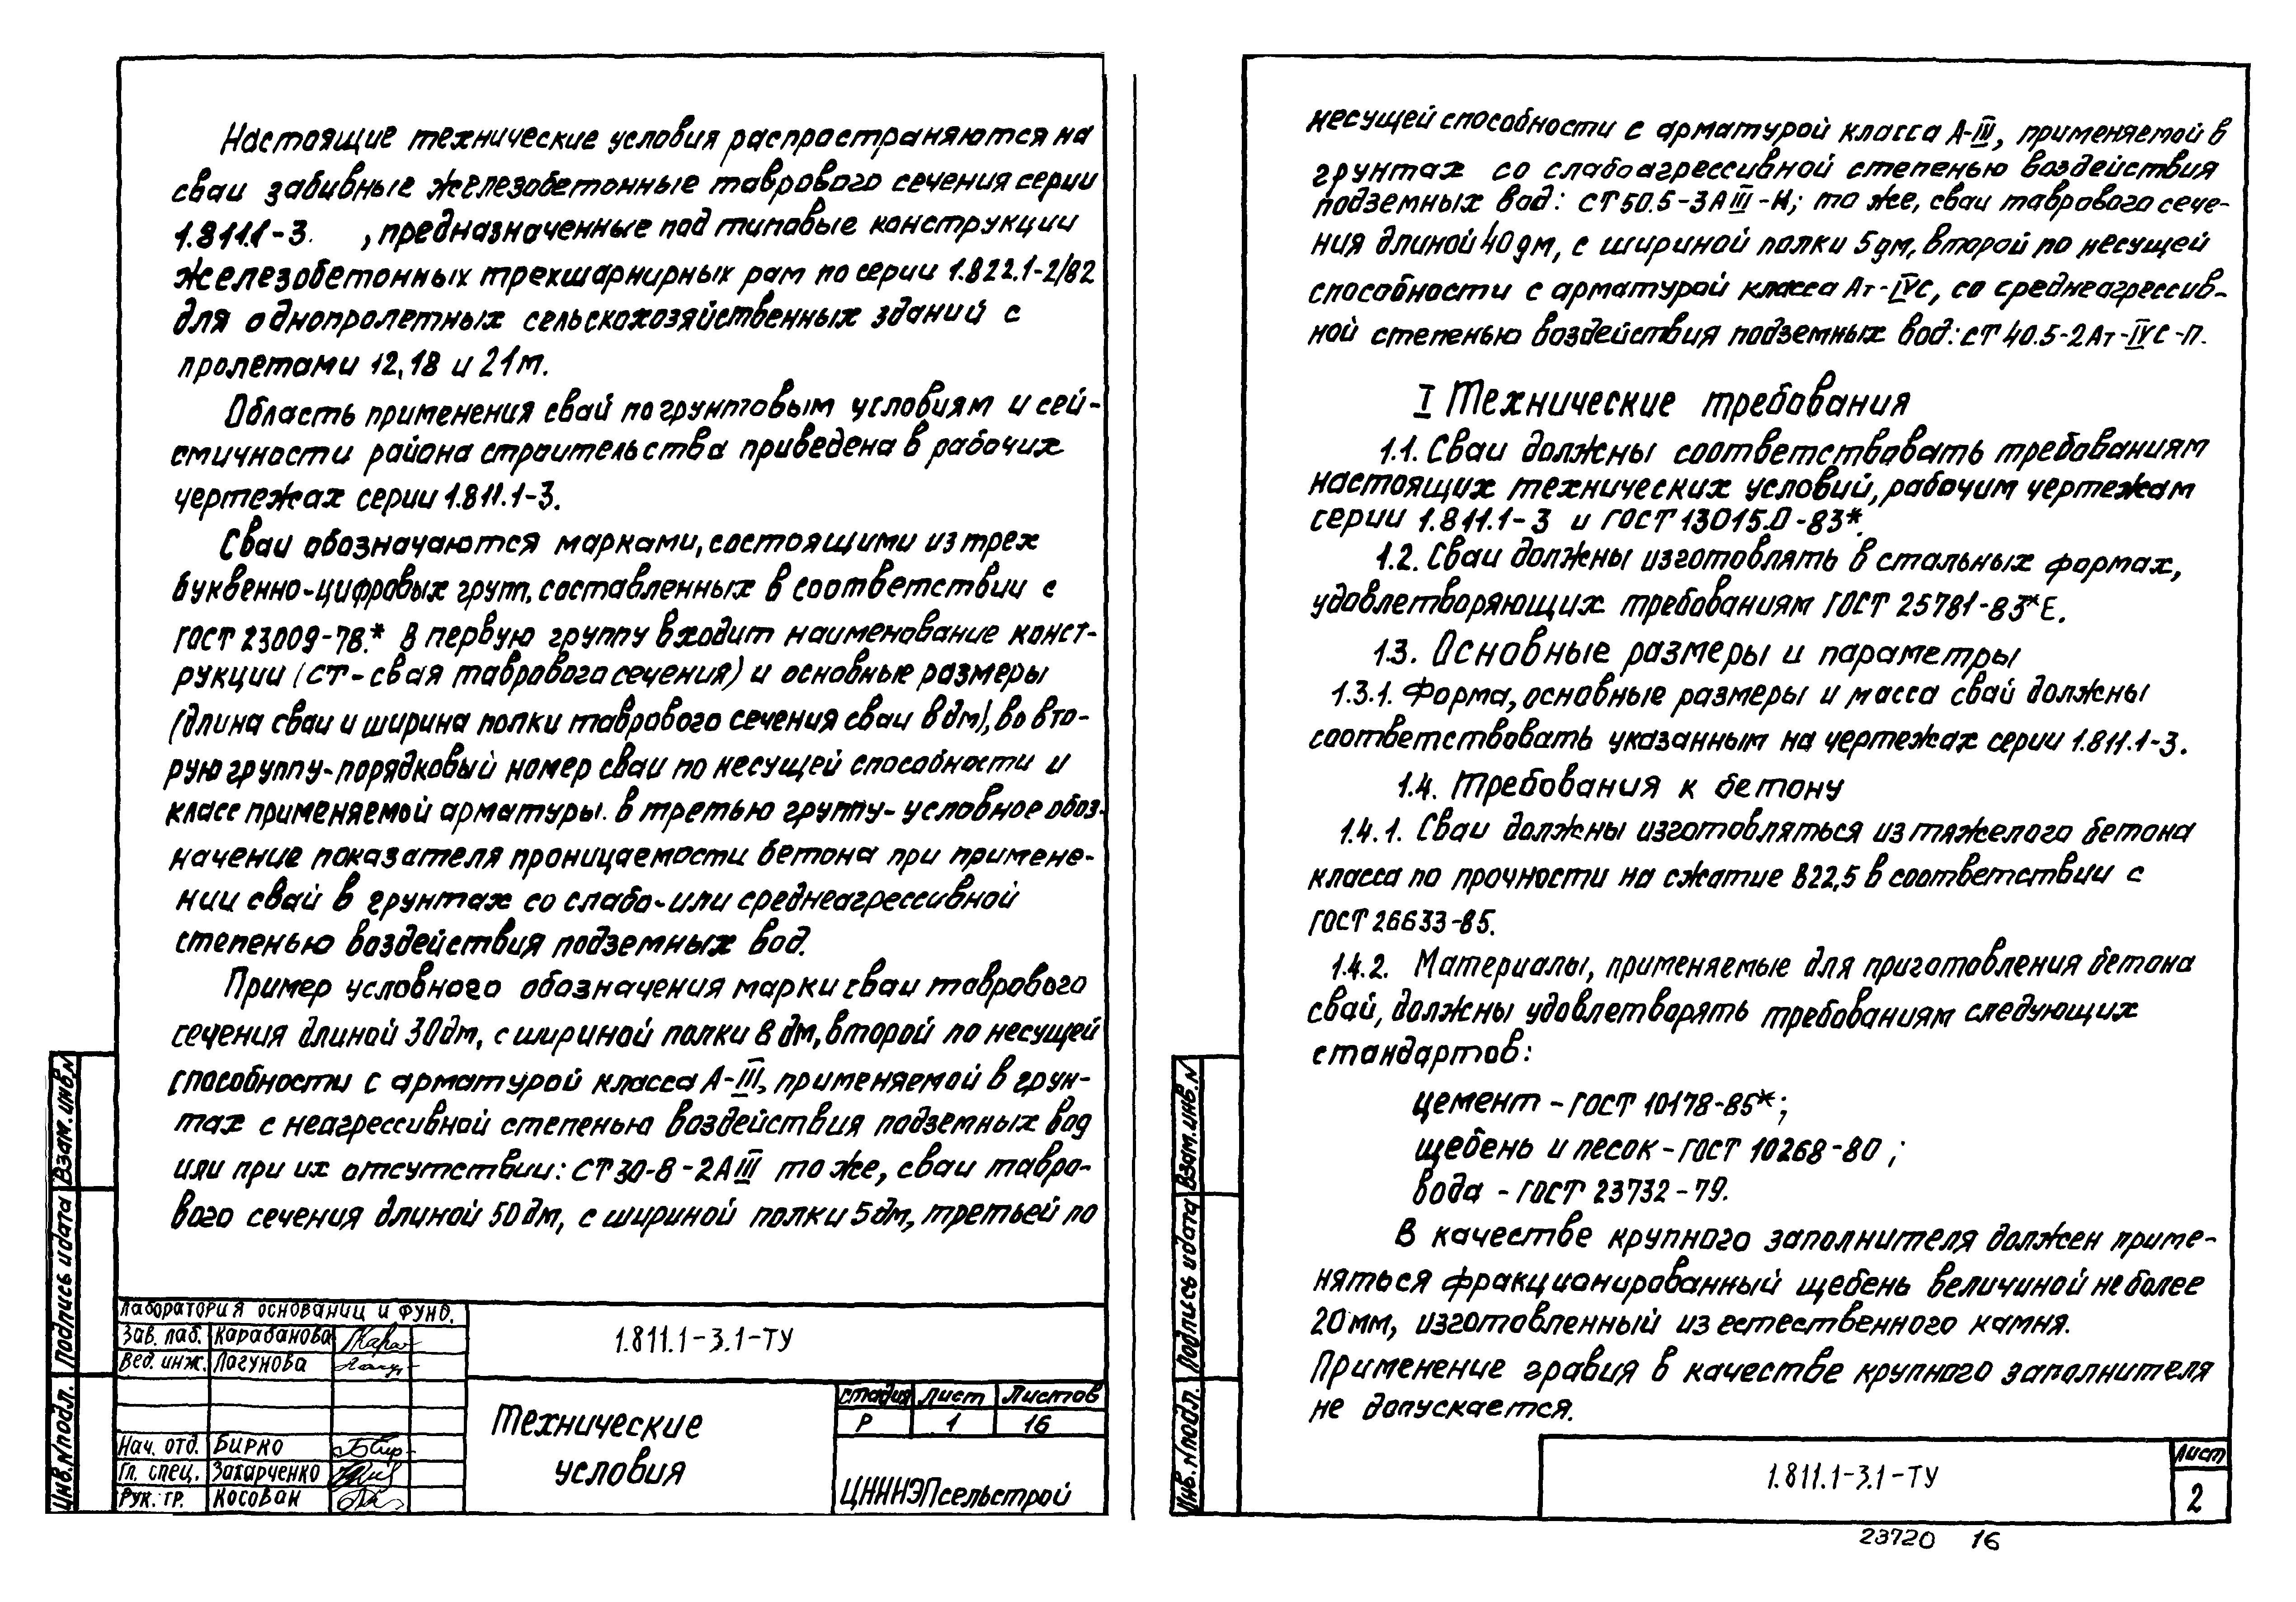 Настоящие технические условия распространяются на
сваи забивные железобетонные таврового сечения серии
1.811.1-3. , предназначенные под типовые конструкции
железобетонных трехшарнирных рам по серии 1.822.1-2/82
для однопролетных сельскохозяйственных зданий с
пролетами 12, 18 и 21м.
Область применения свай по грунтовым условиям и сей-
смичности района строительства приведена в рабочих
чертежах серии 1.811.1-3.
Сваи обозначаются марками, состоящими из трех
буквенно-цифровых групп, составленных в соответствии с
ГОСТ 23009-78.* В первую группу входит наименование конст-
рукции (СТ-свая таврового сечения) и основные размеры
(длина сваи и ширина полки таврового сечения сваи в дм), во вто-
рую группу-порядковый номер сваи по несущей способности и
класс применяемой арматуры. в третью группу-условное обоз-
начение показателя проницаемости бетона при примене-
нии свай в грунтах со слабо-или среднеагрессивной
степенью воздействия подземных вод.
Пример условного обозначения марки сваи таврового
сечения длиной 30дм, с шириной полки 8 дм, второй по несущей
способности с арматурой класса А-III, применяемой в грун-
тах с неагрессивной степенью воздействия подземных вод
или при их отсутствии: СТ30-8-2АIII то же, сваи тавро-
вого сечения длиной 50дм, с шириной полки 5дм, третьей по
Лаборатория основаниц и фунд.
Зав. лаб. Карабанова
Вед. инж. Лагунова
Нач. отд. Бирко
Гл. спец. Захарченко
Рук. гр. Косован
1.811.1-3.1-ТУ
Технические
условия
Стадия Лист Листов
Р 1 16
ЦНИИЭПсельстрой
Инв.№подл. Подпись и дата Взам.инв.№
несущей способности с арматурой класса А-III, применяемой в
грунтах со слабоагрессивной степенью воздействия
подземных вод: СТ50.5-3АIII-Н; то же, сваи таврового сече-
ния длиной 40дм, с шириной полки 5дм, второй по несущей
способности с арматурой класса Ат-IVС, со среднеагрессив-
ной степенью воздействия подземных вод: СТ 40.5-2Ат-IVС-П.
I Технические требования
1.1. Сваи должны соответствовать требованиям
настоящих технических условий, рабочим чертежам
серии 1.811.1-3 и ГОСТ 13015.0-83*.
1.2. Сваи должны изготовлять в стальных формах,
удовлетворяющих требованиям ГОСТ 25781-83*Е.
1.3. Основные размеры и параметры
1.3.1. Форма, основные размеры и масса свай должны
соответствовать указанным на чертежах серии 1.811.1-3.
1.4. Требования к бетону
1.4.1. Сваи должны изготовляться из тяжелого бетона
класса по прочности на сжатие В22,5 в соответствии с
ГОСТ 26633-85.
1.4.2. Материалы, применяемые для приготовления бетона
свай, должны удовлетворять требованиям следующих
стандартов:
цемент - ГОСТ 10178-85*;
щебень и песок - ГОСТ 10268-80;
вода - ГОСТ 23732-79.
В качестве крупного заполнителя должен приме-
няться фракционированный щебень величиной не более
20мм, изготовленный из естественного камня.
Применение гравия в качестве крупного заполнителя
не допускается.
1.811.1-3.1-ТУ
Лист
2
Инв.№подл. Подпись и дата Взам.инв.№
23720 16